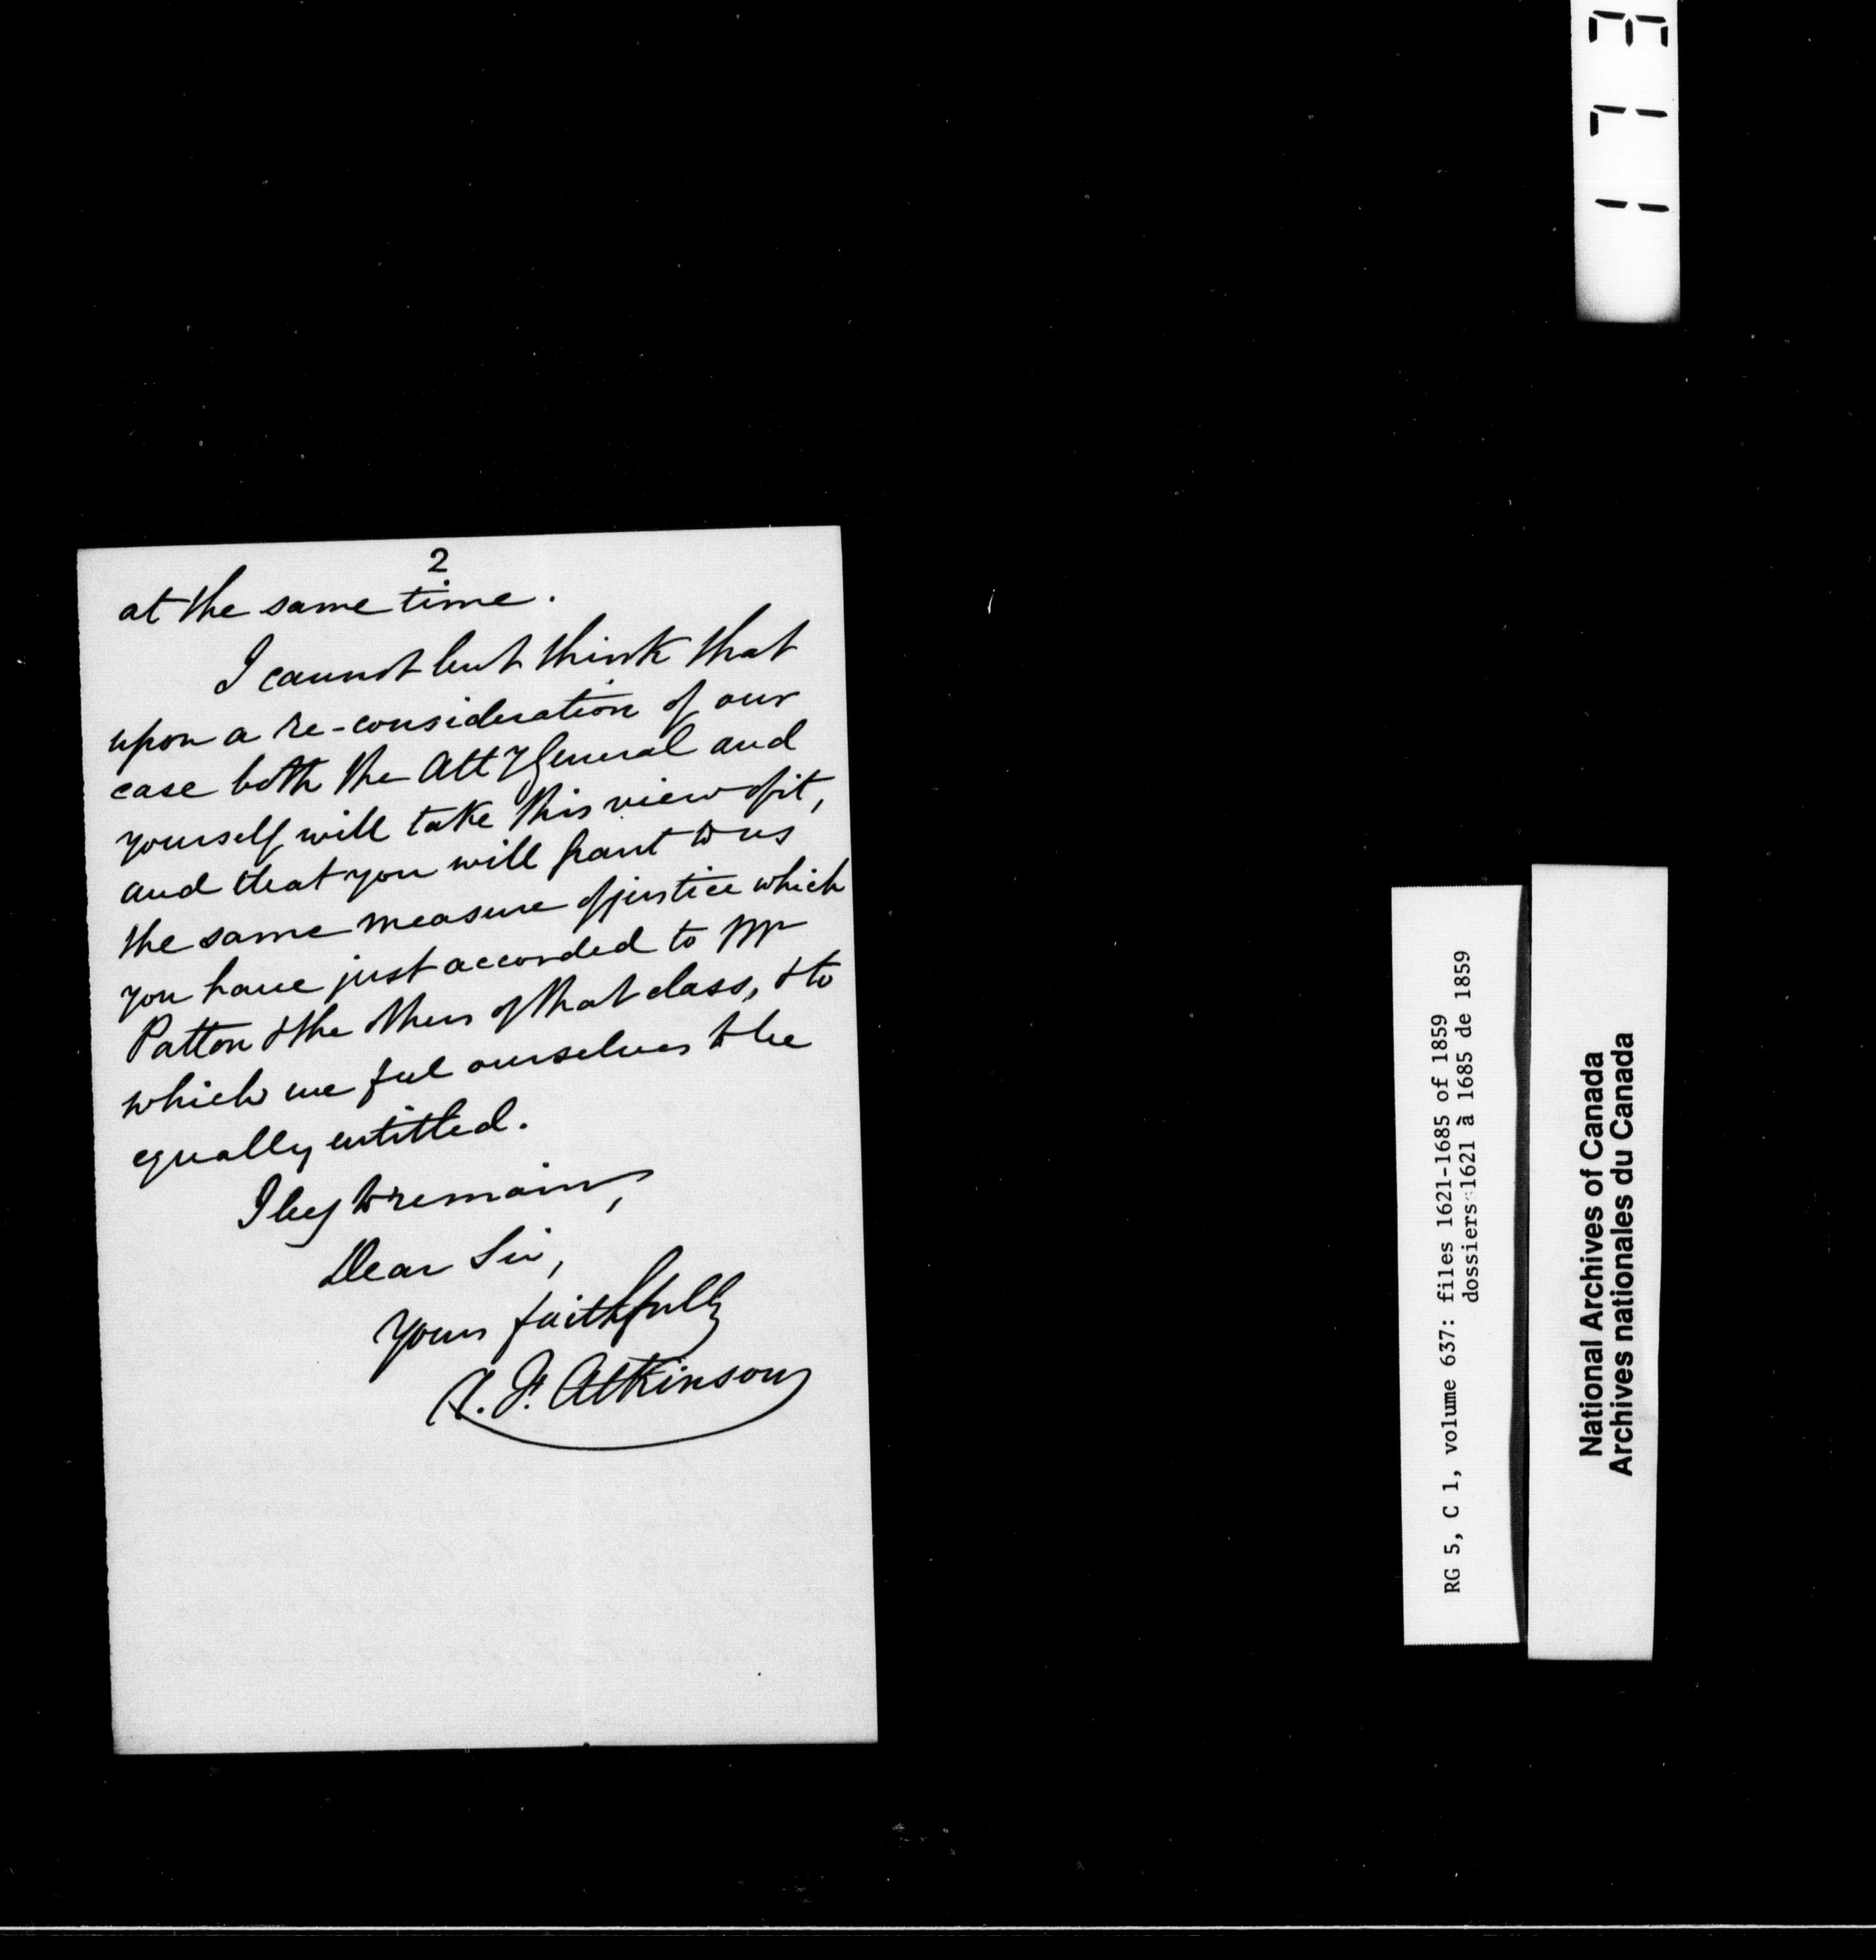 2
at the same time.
I cannot but think that
upon a re-consideration of our
case both the Atty General and
yourself will take this view of it,
and that you will grant to us
the same measure of justice which
you have just accorded to Mr
Patton & the others of that class, & to
which we feel ourselves to be
equally entitled.
I beg to remain,
Dear Sir,
Yours faithfully
A. F. Atkinson
RG 5, C 1, volume 637: files 1621-1685 of 1859
dossiers 1621 à 1685 de 1859
National Archives of Canada
Archives nationales du Canada